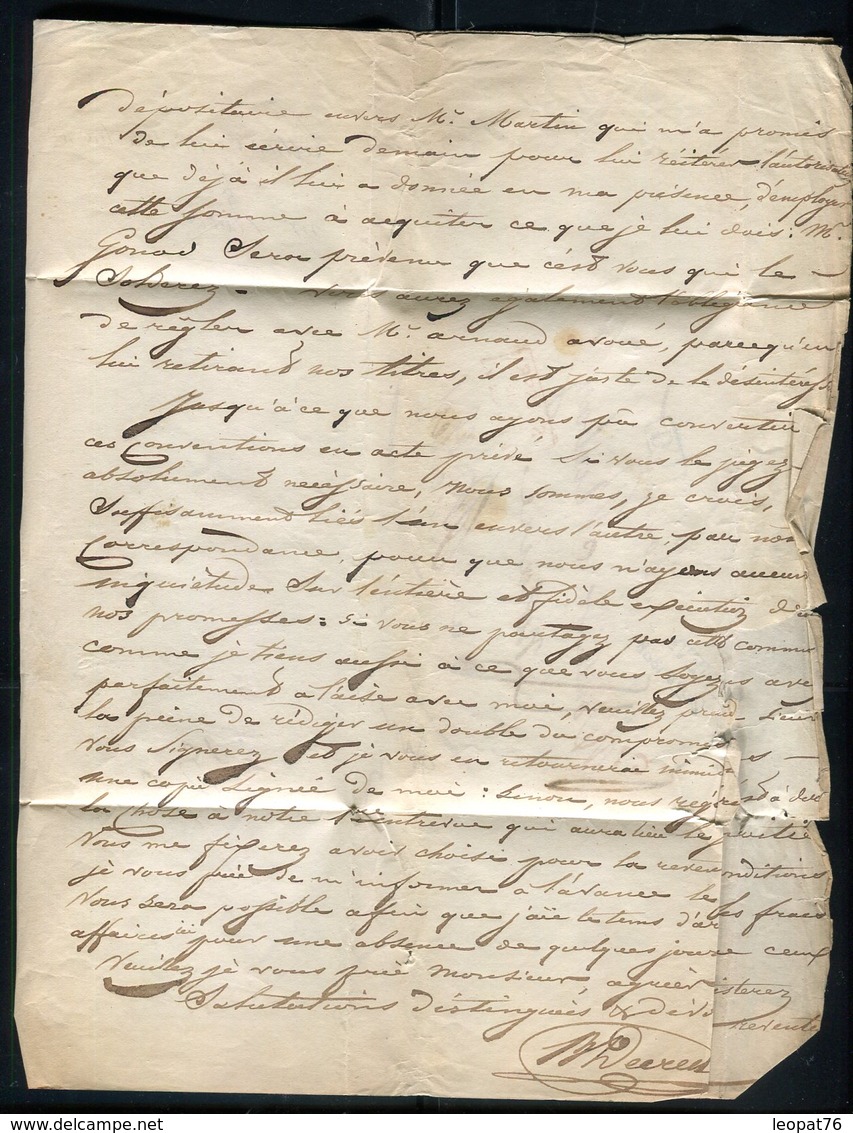 dépositaire envers Mr. Martin qui m'a promis
de lui écrire demain pour lui réitérer l'autorisat
que déjà il lui a donnée en ma présence, d'employer
cette somme à acquiter ce que je lui dois: Mr.
Gonod Sera prévenu que c'est vous qui le
Solderez. Vous aurez également l'obligeance
de règler avec Mr. arnaud avoué, parcequ'en
lui retirant nos titres, il est juste de le désintéress
Jusqu'à ce que nous ayons pu convertir
ces Conventions en acte privé Si vous le jugez
absolument nécessaire, nous sommes, je crois,
Suffisamment liés l'un envers l'autre, par nôtre
Correspondance, pour que nous n'ayons aucune
inquiétude Sur l'entière et fidèle exécution de
nos promesses: Si vous ne partagez pas cette
comme je tiens aussi à ce que vous Soyez
parfaitement à l'aise avec moi, veuillez prend
la peine de rédiger un double du compromis
vous Signerez et je vous en retournerai
une copie Signée de moi: Sinon, nous
la Chose à notre l'entrevue qui aura lieu
Vous me fixerez avoir choisi pour la
je vous prie de m'informer à l'avance
vous sera possible afin que j'aie le tems d'ar
affaires ici pour une absence de quelques jours
Veuillez je vous prie Monsieur, agréer
Salutations distinguées & dévo